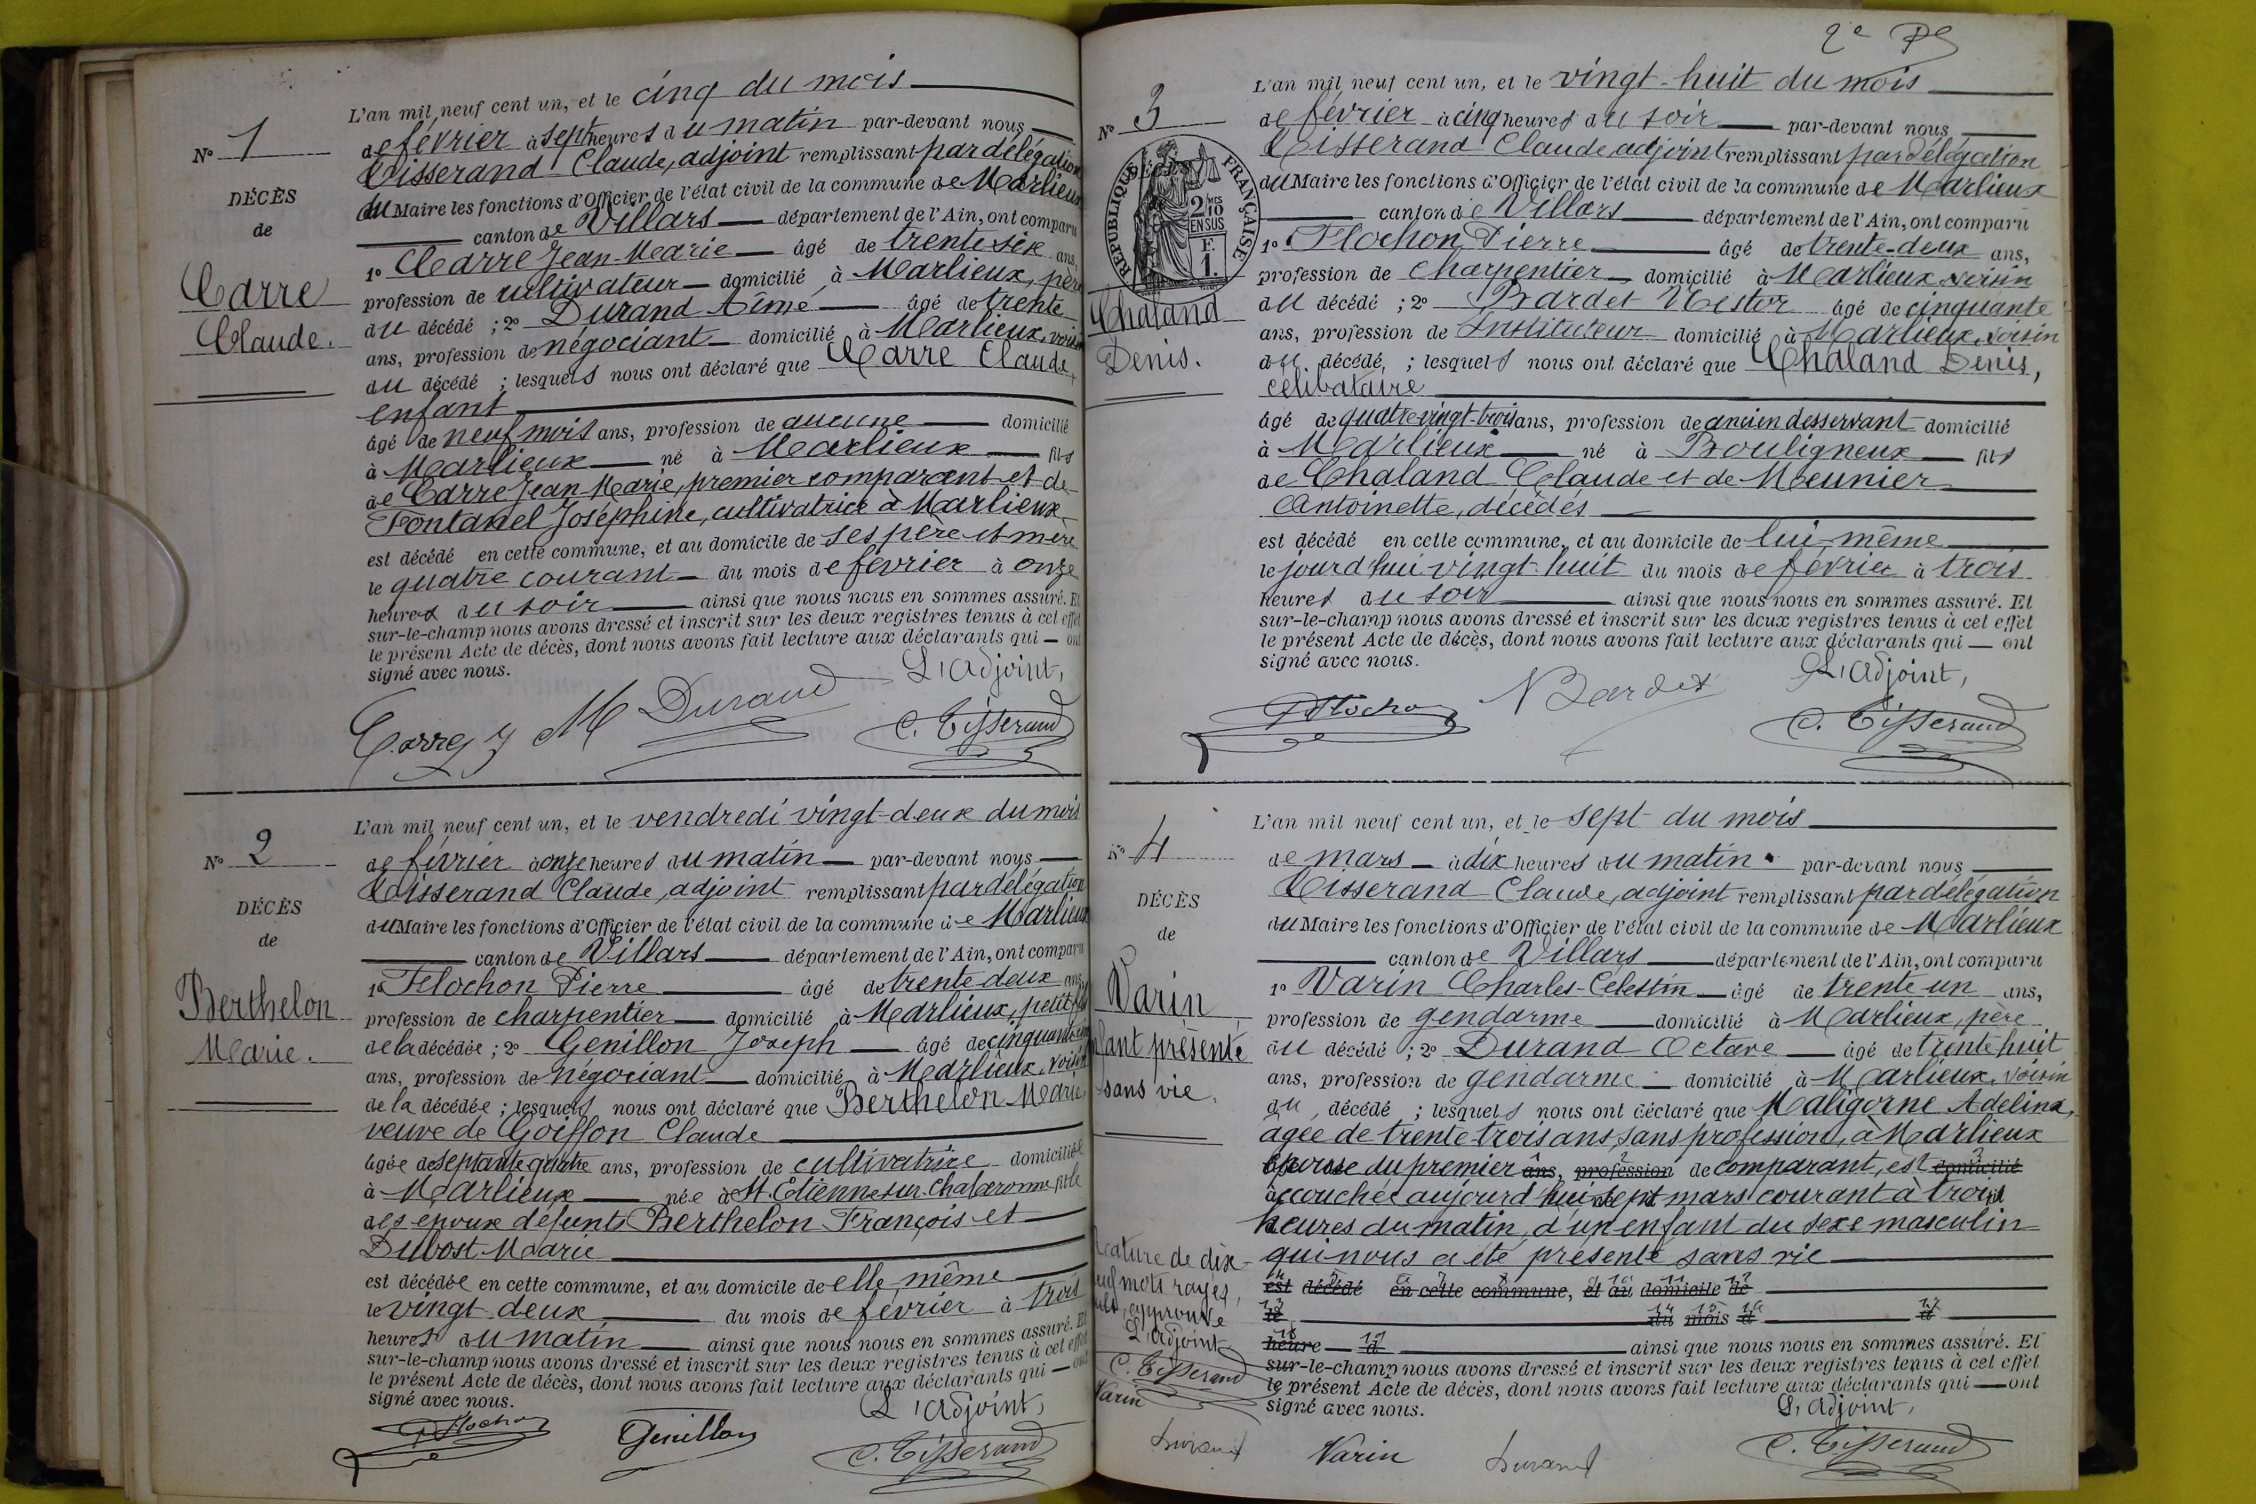 N° 1
DÉCÈS
de
Carre
Claude.
L'an mil neuf cent un, et le cinq du mois
de février à sept heures du matin par-devant nous
Tisserand Claude, adjoint remplissant par délégation
du Maire les fonctions d'Officier de l'état civil de la commune de Marlieux
canton de Villars département de l'Ain, ont comparu
1° Carre Jean-Marie âgé de trente six ans,
profession de cultivateur domicilié à Marlieux, père
du décédé ; 2° Durand Aimé âgé de trente
ans, profession de négociant domicilié à Marlieux, voisin
du décédé ; lesquels nous ont déclaré que Carre Claude,
enfant
âgé de neuf mois ans, profession de aucune domicilié
à Marlieux né à Marlieux fils
de Carre Jean Marie, premier comparant et de
Fontanel Joséphine, cultivatrice à Marlieux
est décédé en cette commune, et au domicile de ses père et mère
le quatre courant du mois de février à onze
heures du soir ainsi que nous nous en sommes assuré. Et
sur-le-champ nous avons dressé et inscrit sur les deux registres tenus à cet effet
le présent Acte de décès, dont nous avons fait lecture aux déclarants qui ont
signé avec nous.
L'Adjoint,
Carre J M Durand C. Tisserand
N° 2
DÉCÈS
de
Berthelon
Marie.
L'an mil neuf cent un, et le vendredi vingt-deux du mois
de février à onze heures du matin par-devant nous
Tisserand Claude, adjoint remplissant par délégation
du Maire les fonctions d'Officier de l'état civil de la commune de Marlieux
canton de Villars département de l'Ain, ont comparu
1° Flochon Pierre âgé de trente-deux ans,
profession de charpentier domicilié à Marlieux, petit fils
de la décédée ; 2° Genillon Joseph âgé de cinquante
ans, profession de négociant domicilié à Marlieux, voisin
de la décédée ; lesquels nous ont déclaré que Berthelon Marie,
veuve de Goiffon Claude
âgée de septante quatre ans, profession de cultivatrice domiciliée
à Marlieux née à St Etienne sur Chalaronne fille
des époux défunts Berthelon François et
Dubost Marie
est décédée en cette commune, et au domicile de elle même
le vingt-deux du mois de février à trois
heures du matin ainsi que nous nous en sommes assuré. Et
sur-le-champ nous avons dressé et inscrit sur les deux registres tenus à cet effet
le présent Acte de décès, dont nous avons fait lecture aux déclarants qui ont
signé avec nous.
L'Adjoint,
P Flochon Genillon C. Tisserand
2e
N° 3
DÉCÈS
RÉPUBLIQUE FRANÇAISE
2/10 MES
EN SUS
F.
1.
Chaland
Denis.
L'an mil neuf cent un, et le vingt-huit du mois
de février à cinq heures du soir par-devant nous
Tisserand Claude, adjoint remplissant par délégation
du Maire les fonctions d'Officier de l'état civil de la commune de Marlieux
canton de Villars département de l'Ain, ont comparu
1° Flochon Pierre âgé de trente-deux ans,
profession de charpentier domicilié à Marlieux voisin
du décédé ; 2° Bardet Nestor âgé de cinquante
ans, profession de Instituteur domicilié à Marlieux, voisin
du décédé, ; lesquels nous ont déclaré que Chaland Denis,
célibataire
âgé de quatre-vingt-trois ans, profession de ancien desservant domicilié
à Marlieux né à Bouligneux fils
de Chaland Claude et de Meunier
Antoinette, décédés
est décédé en cette commune, et au domicile de lui même
le jourd'hui vingt-huit du mois de février à trois
heures du soir ainsi que nous nous en sommes assuré. Et
sur-le-champ nous avons dressé et inscrit sur les deux registres tenus à cet effet
le présent Acte de décès, dont nous avons fait lecture aux déclarants qui ont
signé avec nous.
L'Adjoint,
P Flochon N Bardet C. Tisserand
N° 4
DÉCÈS
de
Varin
présenté
sans vie.
L'an mil neuf cent un, et le sept du mois
de mars à dix heures du matin par-devant nous
Tisserand Claude, adjoint remplissant par délégation
du Maire les fonctions d'Officier de l'état civil de la commune de Marlieux
canton de Villars département de l'Ain, ont comparu
1° Varin Charles-Celestin âgé de trente-un ans,
profession de gendarme domicilié à Marlieux, père
du décédé ; 2° Durand Octave âgé de trente huit
ans, profession de gendarme domicilié à Marlieux, voisin
du décédé ; lesquels nous ont déclaré que Maligorne Adelina,
agée de trente-trois ans, sans profession, à Marlieux
épouse du premier ans, profession de comparant, est domicilié
accouchée aujourd'hui sept mars courant à trois
heures du matin, d'un enfant du sexe masculin
qui nous a été présenté sans vie
est décédé en cette commune, et au domicile de
le du mois d à
heure d ainsi que nous nous en sommes assuré. Et
sur-le-champ nous avons dressé et inscrit sur les deux registres tenus à cet effet
le présent Acte de décès, dont nous avons fait lecture aux déclarants qui ont
signé avec nous.
L'Adjoint,
Varin Durand C. Tisserand
de dix-
mots rayés,
approuvé
L'adjoint
C. Tisserand
Varin
Durand